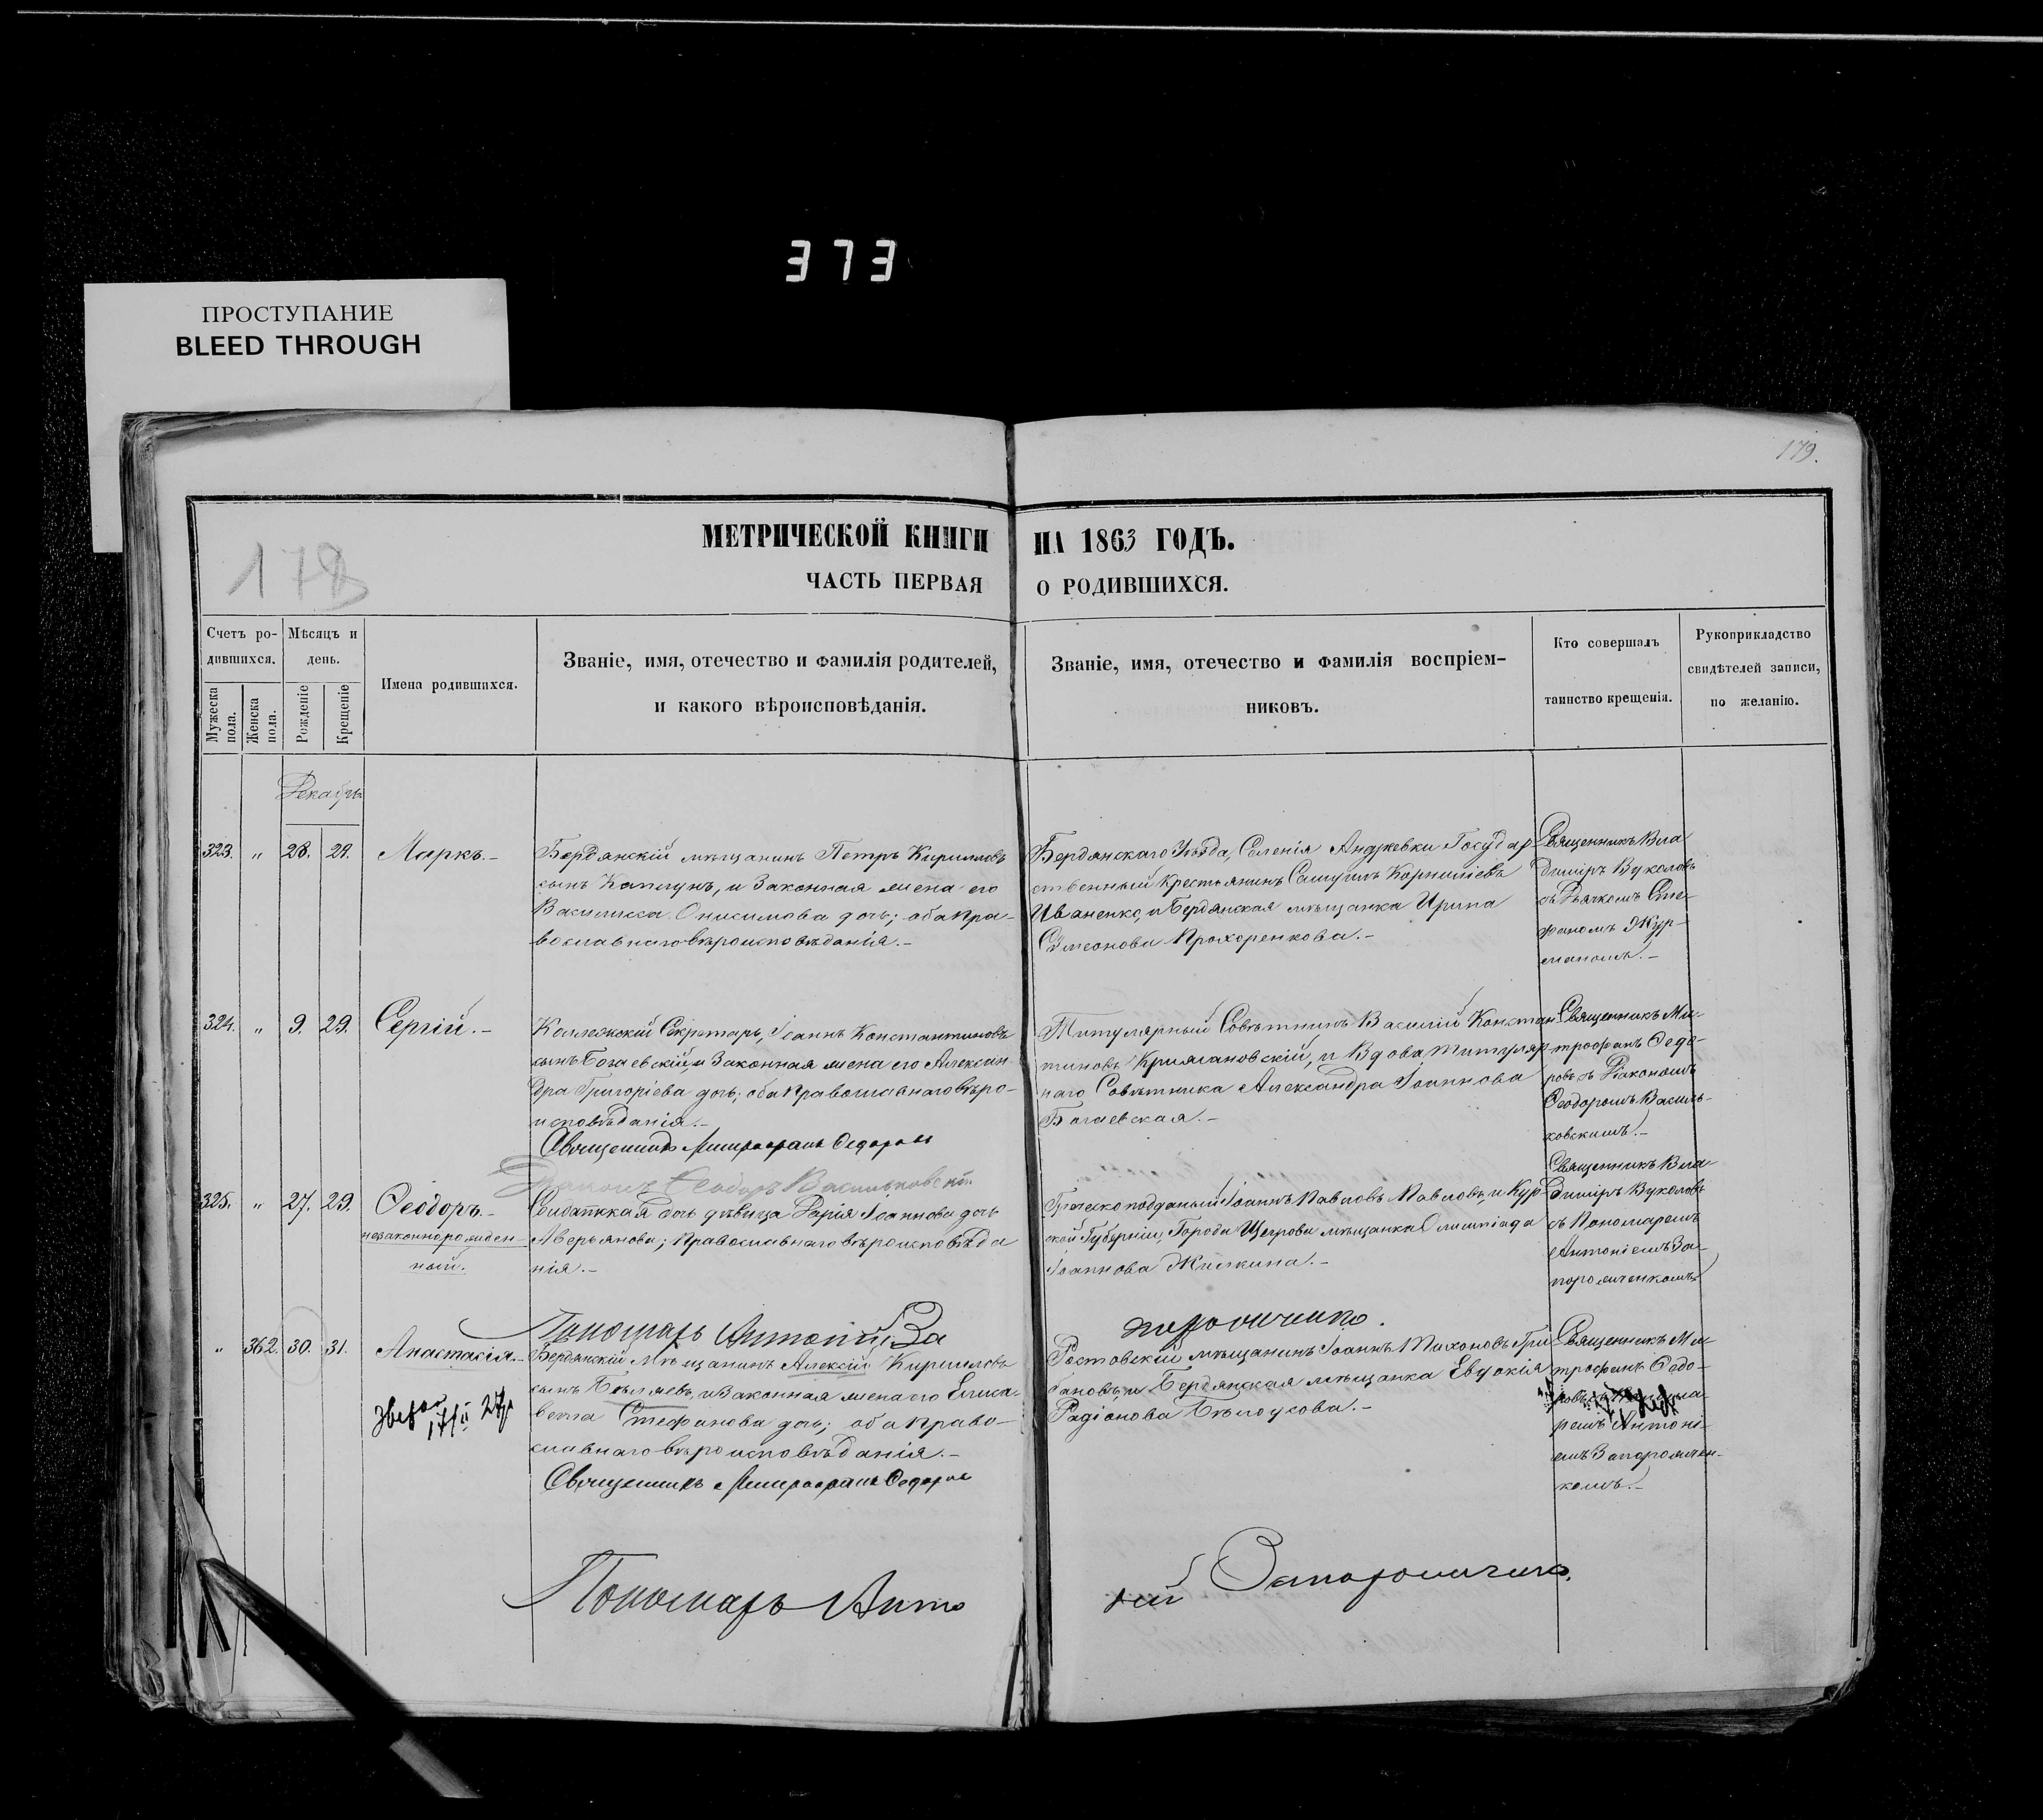 373
ПРОСТУПАНИЕ
BLEED THROUGH
179.
178
МЕТРИЧЕСКОЙ КНИГИ НА 1863 ГОДЪ.
ЧАСТЬ ПЕРВАЯ О РОДИВШИХСЯ.
Счетъ ро-
дившихся.
Мужеска
пола.
Женска
пола.
Мѣсяцъ и
день.
Рожденіе
Крещеніе
Имена родившихся.
Званіе, имя, отечество и фамилія родителей,
и какого вѣроисповѣданія.
Званіе, имя, отечество и фамилія воспріем-
никовъ.
Кто совершалъ
таинство крещенія.
Рукоприкладство
свидѣтелей записи,
по желанію.
Декабрь
323. " 28. 29. Маркъ.-
Бердянскій мѣщанинъ Петръ Кирилловъ
сынъ Каплунъ, и Законная жена его
Василисса Онисимова дочь; оба пра-
вославнаго вѣроисповѣданія.-
Бердянскаго Уѣзда, Селенія Андреевки Государ
ственный крестьянинъ Самуилъ Корниліевъ
Иваненко, и Бердянская мѣщанка Ирина
Симеонова Прохоренкова.-
Священникъ Вла
диміръ Вуколовъ
съ Дьячкомъ Сте-
фаномъ Жур-
маномъ.-
324. " 9. 29. Сергій.-
Коллежскій Секретарь, Іоаннъ Константиновъ
сынъ Богаевскій, и Законная жена его Алексан-
дра Григоріева дочь; оба православнаго вѣро-
исповѣданія.-
Священникъ Митрофанъ Федоровъ
Діаконъ Феодоръ Васильковскій
Титулярный Совѣтникъ Василій Констан
тиновъ Крижановскій, и Вдова титуляр
наго Совѣтника Александра Іоаннова
Богаевская.-
Священникъ Ми-
трофанъ Федо-
ровъ съ Діакономъ
Феодоромъ Василь-
ковскимъ.-
325. " 27. 29. Феодоръ.-
незаконнорожден-
ный.
Солдатская дочь дѣвица Дарія Іоаннова дочь
Аверьянова; православнаго вѣроисповѣда
нія.-
Пономарь Антоній За
порожченко.
Греческоподданый Іоаннъ Павловъ Павловъ, и Кур-
ской Губерніи, Города Щегрова мѣщанка Олимпіада
Іоаннова Жилкина.-
Священникъ Вла-
диміръ Вуколовъ
съ Пономаремъ
Антоніемъ За-
порожченкомъ
" 362. 30. 31. Анастасія.-
Бердянскій Мѣщанинъ Алексій Кирилловъ
сынъ Бѣляевъ, и Законная жена его Елиса-
вета Стефанова дочь; оба право-
славнаго вѣроисповѣданія.-
Священникъ Митрофанъ Федоровъ
Ростовскій мѣщанинъ Іоаннъ Тихоновъ Гри
бановъ, и Бердянская мѣщанка Евдокія
Радіонова Бѣлоусова.-
Священникъ Ми-
трофанъ Федо-
ровъ съ Понома-
ремъ Антоні-
емъ Запорожчен-
комъ.-
Пономарь Анто
ній Запорожченко.